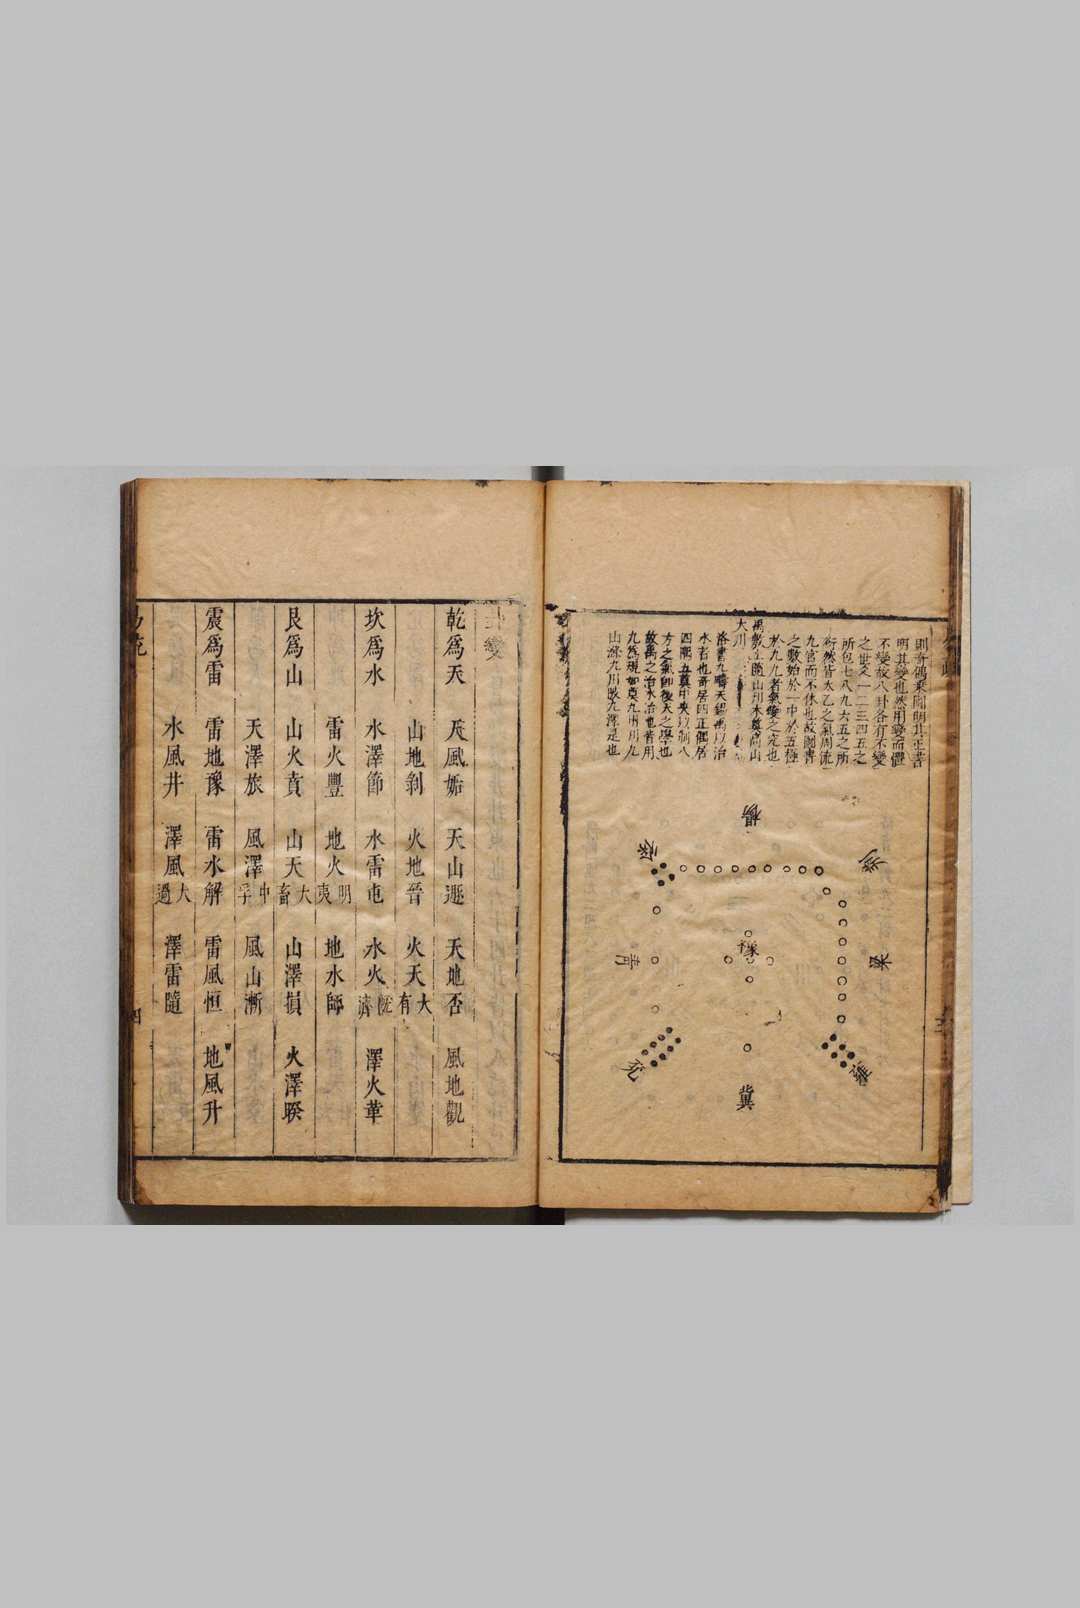 則奇偶乘圖明其正書
明其變也然用變而體
不變故八卦各有不變
之世爻一二三四五之
所包七八九六五之所
衍然皆太乙之氣周流
九宮而不休也故圖書
之數始於一中於五極
於九九者氣變之究也
禹敷土隨山刊木奠高山
大川
洛書九疇天錫禹以治
水者也奇居四正偶居
四隅五奠中央以制八
方之氣即後天之學也
故禹之治水治也皆用
九為規如奠九州刊九
山滌九川陂九澤是也
楊
荊
徐
梁
豫
青
雍
兗
冀
乾爲天 天風姤 天山遯 天地否 風地觀
山地剝 火地晉 火天大有
坎爲水 水澤節 水雷屯 水火旣濟 澤火革
雷火豐 地火明夷 地水師
艮爲山 山火賁 山天大畜 山澤損 火澤睽
天澤旅 風澤中孚 風山漸
震爲雷 雷地豫 雷水解 雷風恒 地風升
水風井 澤風大過 澤雷隨
四